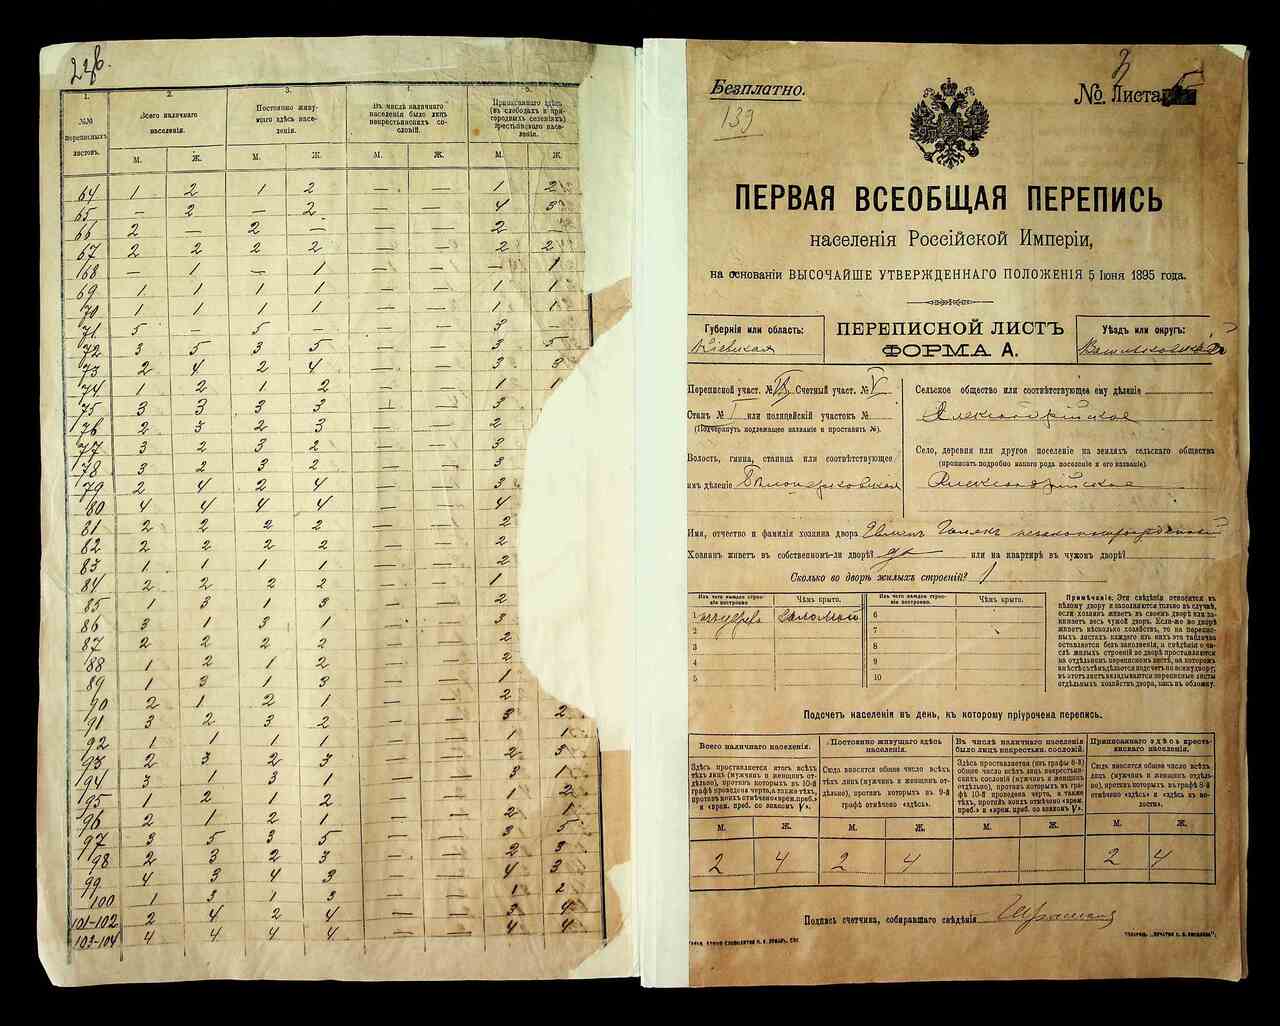 226.
1. 2. 3. 4. 5.
№№ переписныхъ листовъ.
Всего наличнаго населенія.
Постоянно живущаго здѣсь населенія.
Въ числѣ наличнаго населенія было лицъ некрестьянскихъ сословій.
Приписаннаго здѣсь (въ слободахъ и пригородныхъ селеніяхъ) крестьянскаго населенія.
М. Ж. М. Ж. М. Ж. М. Ж.
64 1 2 1 2 — — 1 2
65 — 2 — 2 — — 4 3
66 2 — 2 — — — 2 —
67 2 2 2 2 — — 2 2
168 — 1 — 1 — — — 1
69 1 1 1 1 — — 1 1
70 1 1 1 1 — — 1 1
71 5 — 5 — — — 3 —
72 3 5 3 5 — — 3 5
73 2 4 2 4 — — 3
74 1 2 1 2 — — 1
75 3 3 3 3 — — 3
76 2 3 2 3 — — 2
77 3 2 3 2 — — 3
78 3 2 3 2 — — 3
79 2 4 2 4 — — 3
80 4 4 4 4 — — 4
81 2 2 2 2 — — 2
82 2 2 2 2 — — 2
83 1 1 1 1 — — 2
84 2 2 2 2 — — 1
85 1 3 1 3 — — 2
86 3 1 3 1 — — 3
87 2 2 2 2 — — 2
88 1 2 1 2 — — 2
89 1 3 1 3 — — 1
90 2 1 2 1 — — 2
91 3 2 3 2 — — 3 2
92 1 1 1 1 — — 1 1
93 2 3 2 3 — — 2 3
94 3 1 3 1 — — 3 1
95 1 2 1 2 — — 1 2
96 2 1 2 1 — — 2 1
97 3 5 3 5 — — 3 5
98 2 3 2 3 — — 2 3
99 4 3 4 3 — — 4 3
100 1 3 1 3 — — 1 2
101-102 2 4 2 4 — — 3 4
103-104 4 4 4 4 — — 4 4
Безплатно.
139
№ Листа
ПЕРВАЯ ВСЕОБЩАЯ ПЕРЕПИСЬ
населенія Россійской Имперіи,
на основаніи ВЫСОЧАЙШЕ УТВЕРЖДЕННАГО ПОЛОЖЕНІЯ 5 Іюня 1895 года.
Губернія или область:
Кіевская
ПЕРЕПИСНОЙ ЛИСТЪ
ФОРМА А.
Уѣздъ или округъ:
Васильковскій
Переписной участ. № Счетный участ. № V
Станъ № I или полицейскій участокъ №
(Подчеркнуть подлежащее названіе и проставить №).
Волость, гмина, станица или соотвѣтствующее
имъ дѣленіе Бѣлоцерковская
Сельское общество или соотвѣтствующее ему дѣленіе
Александрійское
Село, деревня или другое поселеніе на земляхъ сельскаго общества
(прописать подробно какого рода поселеніе и его названіе).
Александрійское
Имя, отчество и фамилія хозяина двора
Хозяинъ живетъ въ собственномъ-ли дворѣ? да или на квартирѣ въ чужомъ дворѣ?
Сколько во дворѣ жилыхъ строеній? 1
Изъ чего каждое строеніе построено. Чѣмъ крыто. Изъ чего каждое строеніе построено. Чѣмъ крыто.
1 изъ дерева Соломой 6
2 7
3 8
4 9
5 10
Примѣчаніе. Эти свѣдѣнія относятся къ
цѣлому двору и заполняются только въ случаѣ,
если хозяинъ живетъ въ своемъ дворѣ или занимаетъ
весь чужой дворъ. Если-же во дворѣ
живетъ нѣсколько хозяйствъ, то на переписныхъ
листахъ каждаго изъ нихъ эта табличка
оставляется безъ заполненія, а свѣдѣнія о числѣ
жилыхъ строеній во дворѣ проставляются
на отдѣльномъ переписномъ листѣ, на которомъ
вмѣстѣ съ тѣмъ дѣлается подсчетъ по всему двору;
въ этотъ листъ вкладываются переписные листы
отдѣльныхъ хозяйствъ двора, какъ въ обложку.
Подсчетъ населенія въ день, къ которому пріурочена перепись.
Всего наличнаго населенія.
Постоянно живущаго здѣсь населенія.
Въ числѣ наличнаго населенія было лицъ некрестьян. сословій.
Приписаннаго здѣсь крестьянскаго населенія.
Здѣсь проставляется итогъ всѣхъ тѣхъ лицъ (мужчинъ и женщинъ отдѣльно), противъ которыхъ въ 10-й графѣ проведена черта, а также тѣхъ, противъ коихъ отмѣчено «врем. преб.» и «врем. преб. со знакомъ V».
Сюда вносится общее число всѣхъ тѣхъ лицъ (мужчинъ и женщинъ, отдѣльно), противъ которыхъ въ 9-й графѣ отмѣчено «здѣсь».
Здѣсь проставляется (изъ графы 6-й) общее число всѣхъ лицъ некрестьянскихъ сословій (мужчинъ и женщинъ, отдѣльно), противъ которыхъ въ графѣ 10-й проведена черта, а также тѣхъ, противъ коихъ отмѣчено «врем. преб.» и «врем. преб. со знакомъ V».
Сюда вносится общее число всѣхъ лицъ (мужчинъ и женщинъ отдѣльно), противъ которыхъ въ графѣ 8-й отмѣчено «здѣсь» и «здѣсь въ волости».
М. Ж. М. Ж. М. Ж. М. Ж.
2 4 2 4 2 4
Подпись счетчика, собиравшаго свѣдѣнія